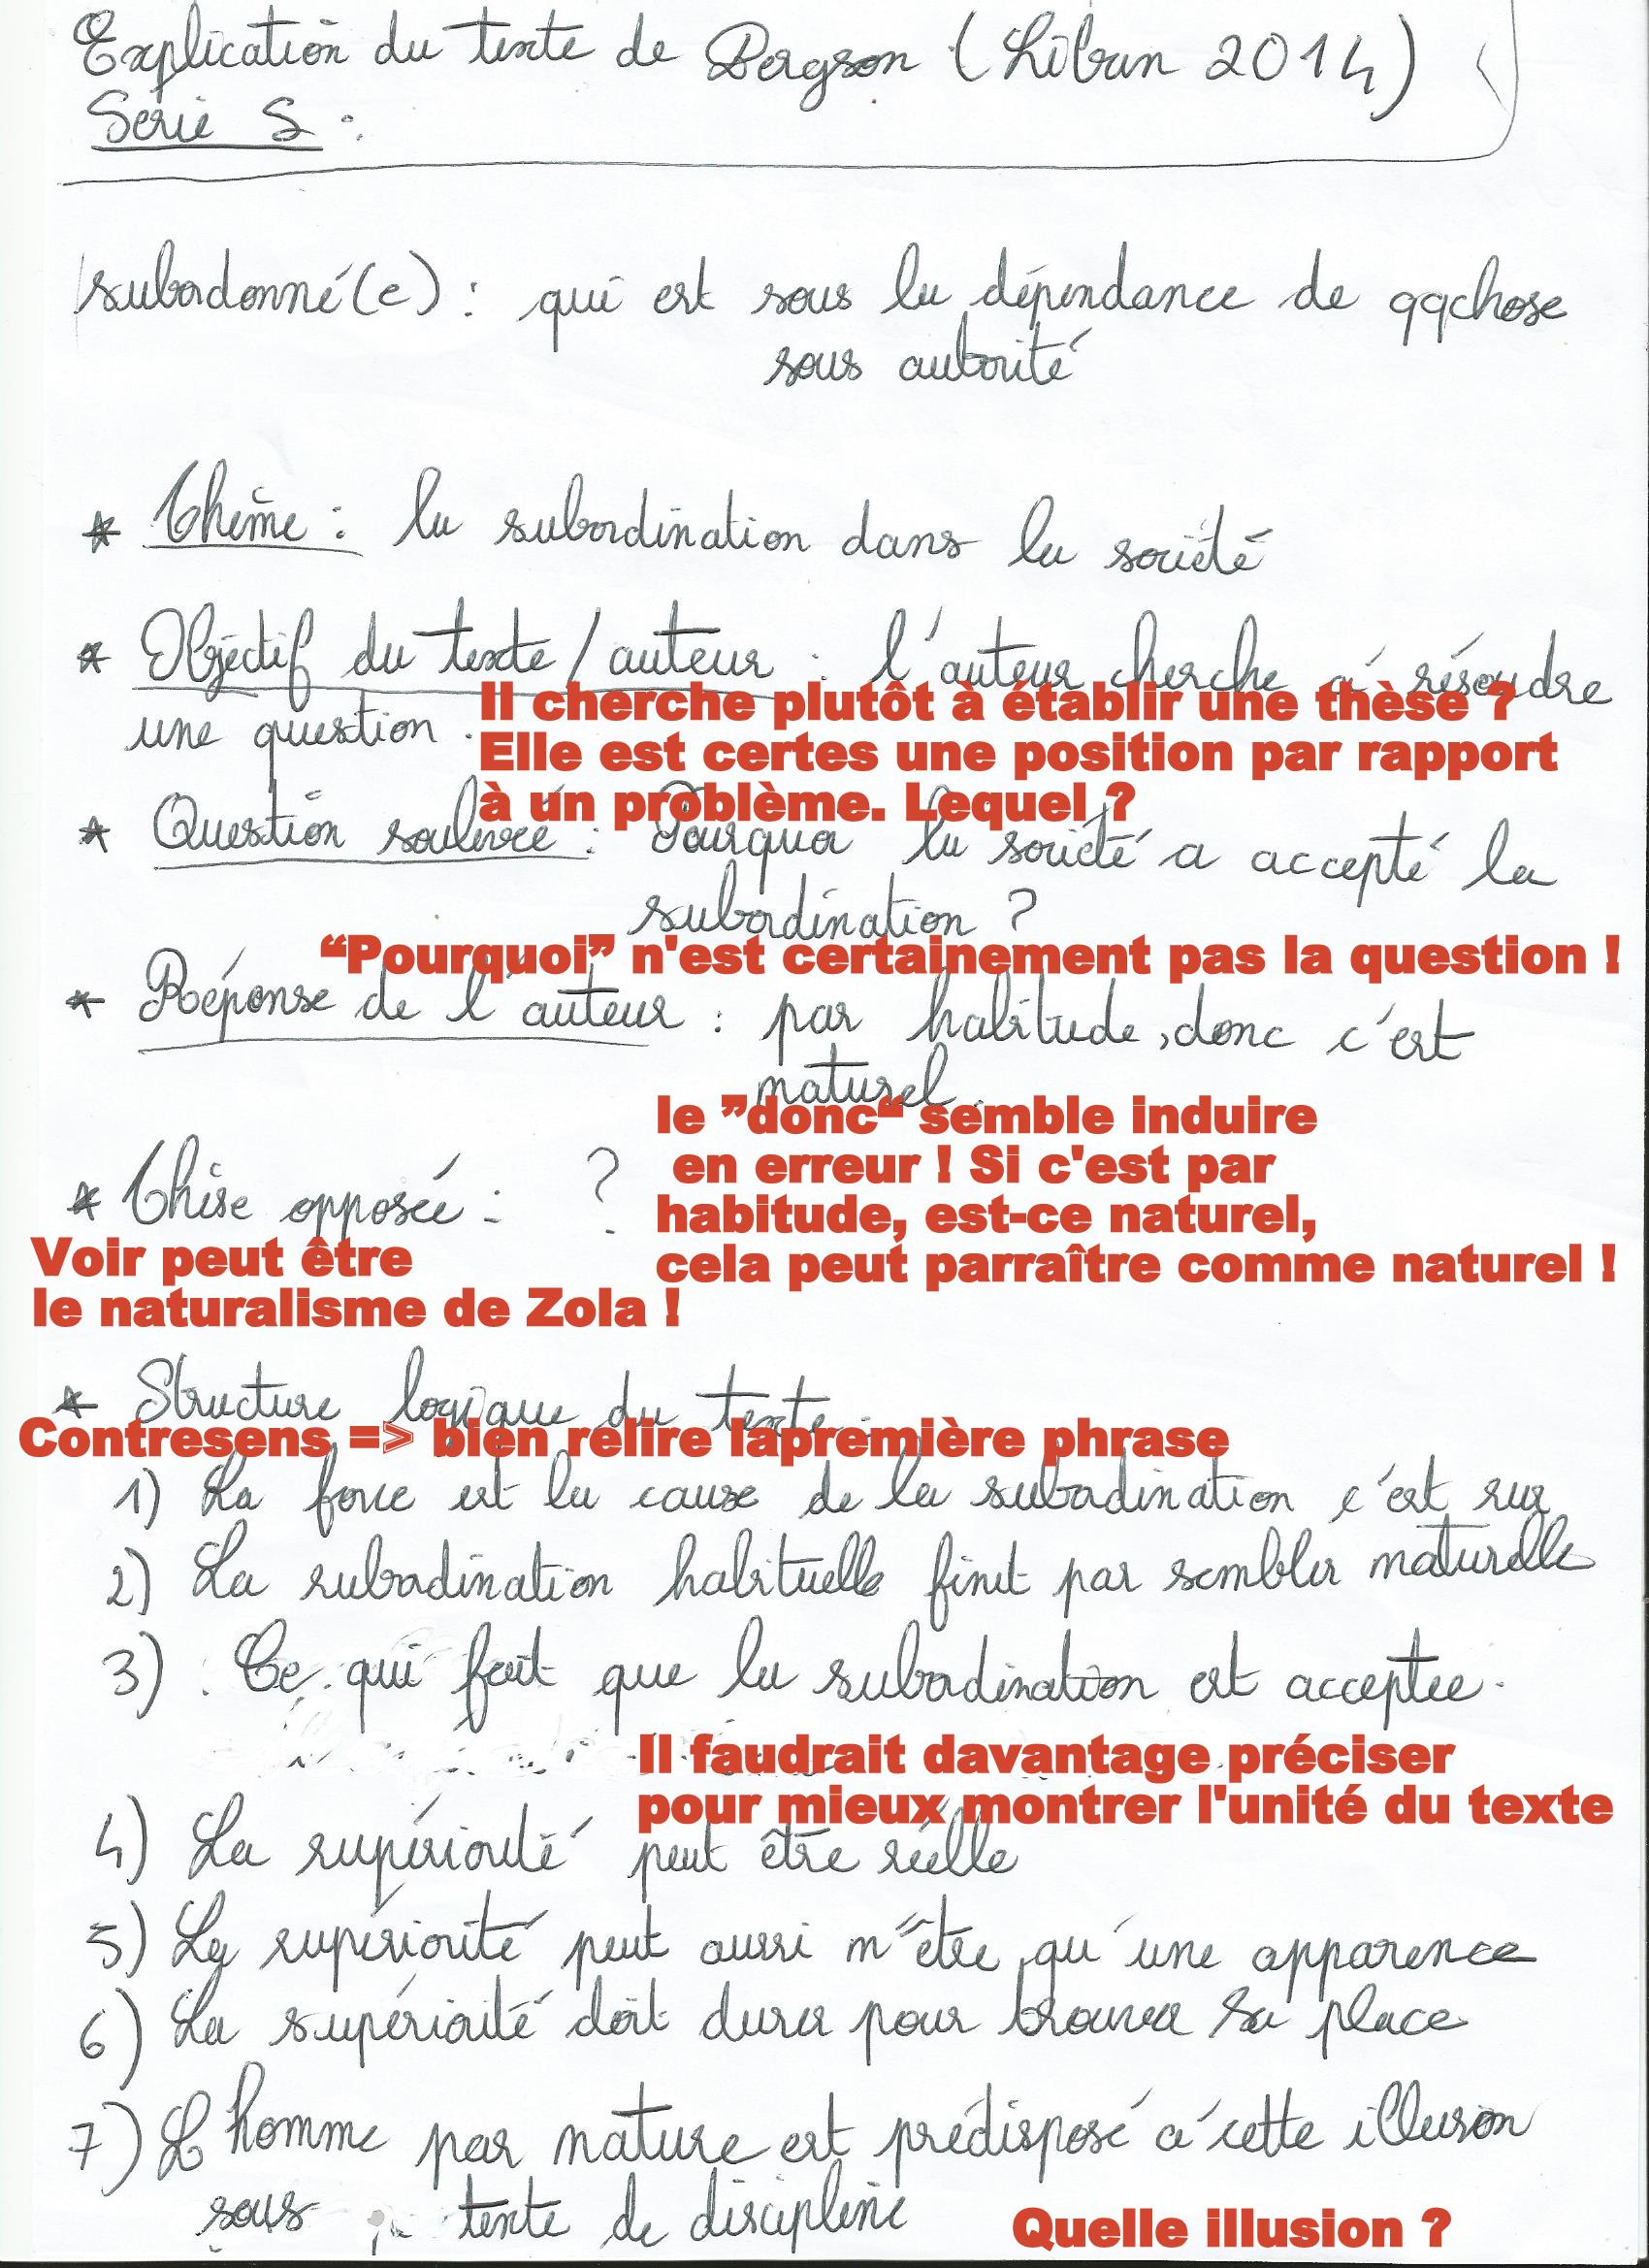 Explication du texte de Bergson (Liban 2014)
Série S :
subordonné(e) : qui est sous la dépendance de qqchose
sous autorité
* Thème : la subordination dans la société
* Objectif du texte / auteur : l'auteur cherche à résoudre
une question.
Il cherche plutôt à établir une thèse ?
Elle est certes une position par rapport
à un problème. Lequel ?
* Question soulevée : Pourquoi la société a accepté la
subordination ?
“Pourquoi” n'est certainement pas la question !
* Réponse de l'auteur : par habitude, donc c'est
naturel.
le ”donc“ semble induire
en erreur ! Si c'est par
habitude, est-ce naturel,
cela peut parraître comme naturel !
* Thèse opposée : ?
Voir peut être
le naturalisme de Zola !
* Structure logique du texte :
Contresens => bien relire lapremière phrase
1) La force est la cause de la subordination c'est sur
2) La subordination habituelle finit par sembler naturelle
3) Ce qui fait que la subordination est acceptée.
Il faudrait davantage préciser
pour mieux montrer l'unité du texte
4) La supériorité peut être réelle
5) La supériorité peut aussi n'être qu'une apparence
6) La supériorité doit durer pour trouver sa place
7) L'homme par nature est prédisposé à cette illusion
sous texte de discipline
Quelle illusion ?